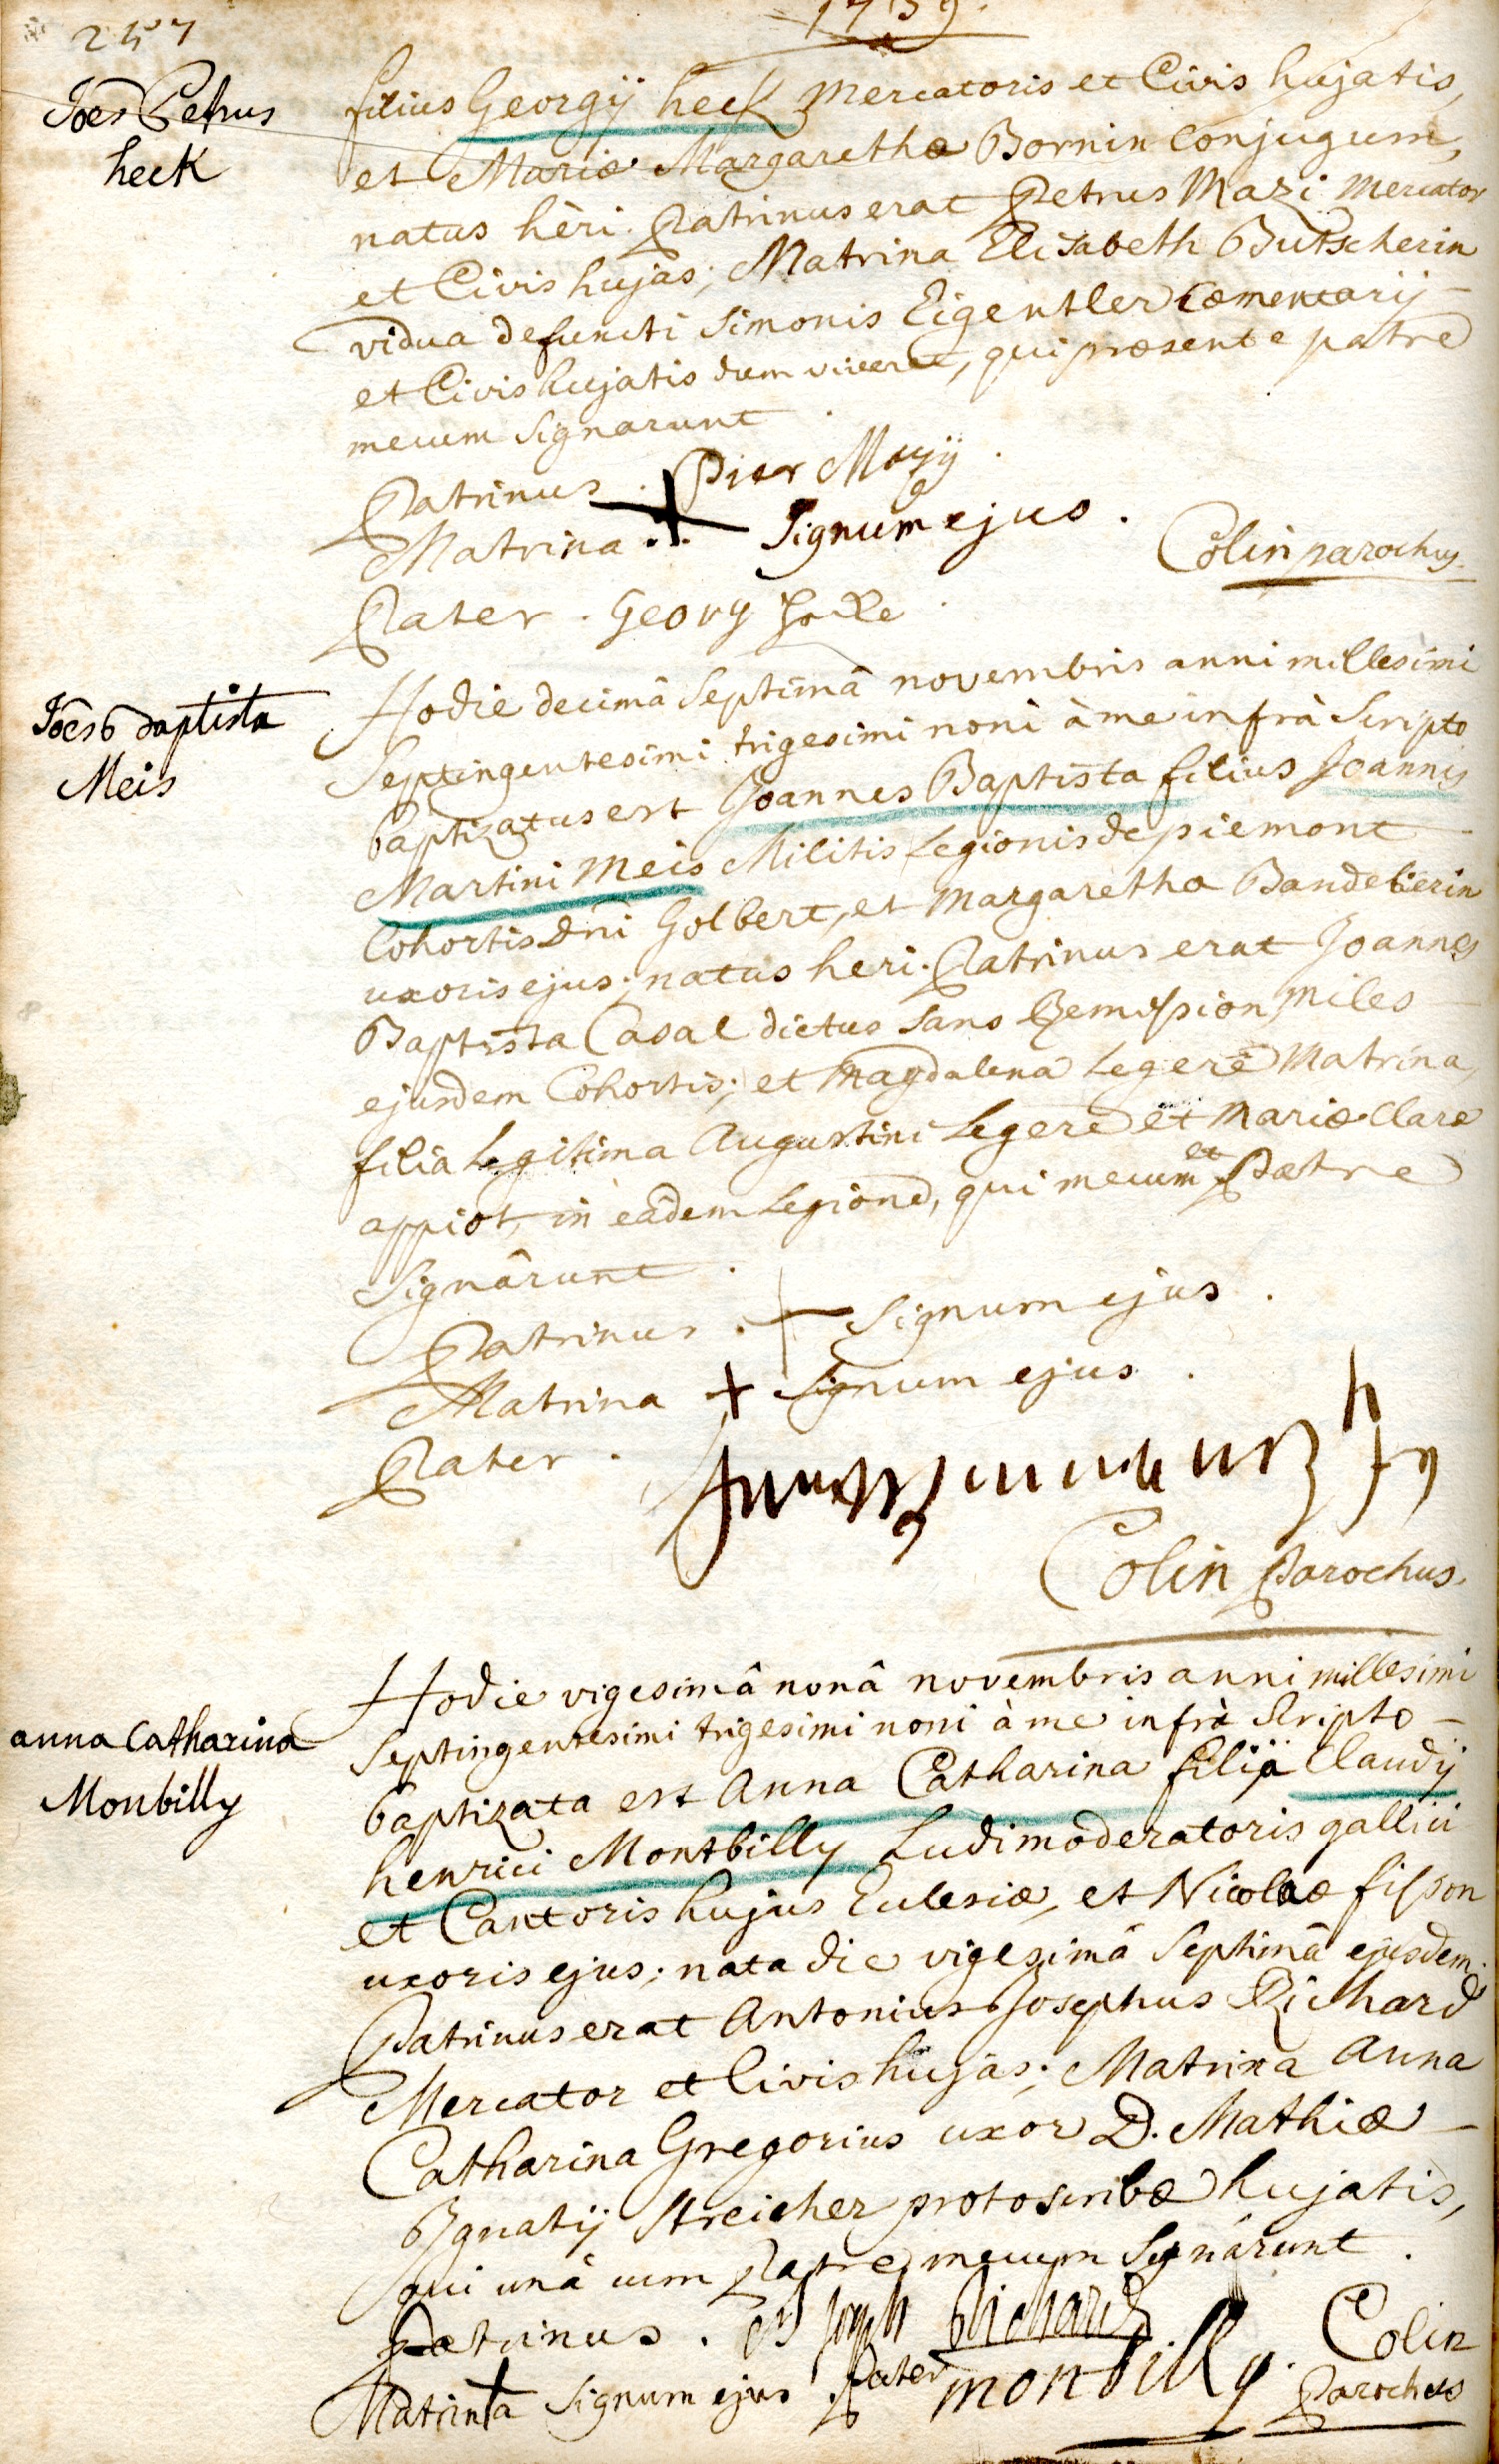 257
1739.
Joes Petrus
heck
filius Georgij heck Mercatoris et Civis hujatis,
et Mariæ Margarethæ Bornin conjugum,
natus hèri. Patrinus erat Petrus Mazi Mercator
et Civis hujas; Matrina Elisabeth Butscherin
vidua defuncti Simonis Eigentler Cæmentarij
et Civis hujatis dum viveret, qui præsente patre
mecum Signarunt
Patrinus .
Matrina . + Signum ejus .
Colin parochus
Pater . Georg
Joes baptista
Meis
Hodie decimâ Septimâ novembris anni millesimi
Septingentesimi trigesimi noni à me infrà Scripto
baptizatus est Joannes Baptista filius Joannis
Martini Meis Militis Legionis de piemont
Cohortis Dni Golbert, et Margaretha Bandelierin
uxoris ejus; natus heri. Patrinus erat Joannes
Baptista Casal dictus Sans Remission, miles
ejusdem Cohortis; et Magdalena Legere Matrina,
filia Legitima Augustini Legere et Mariæ Claræ
appiot, in eâdem Legione, qui mecum et Patre
Signârunt .
Patrinus . + Signum ejus .
Matrina + Signum ejus .
Pater .
Colin Parochus.
anna Catharina
Monbilly
Hodie vigesimâ nonâ novembris anni millesimi
Septingentesimi trigesimi noni à me infrà Scripto
baptizata est Anna Catharina filia Claudij
henrici Montbilly Ludimoderatoris gallici
et Cantoris hujus Ecclesiæ, et Nicolaæ fisson
uxoris ejus; nata die vigesimâ Septimâ ejusdem.
Patrinus erat Antonius Josephus Richard
Mercator et Civis hujas; Matrina Anna
Catharina Gregorius uxor D. Mathiæ
Ignatij Streicher protoscribæ hujatis,
qui unâ cum Patre mecum Signârunt .
Patrinus . Joseph Richard
Colin
Matrina + Signum ejus Pater monbilly.
Parochus